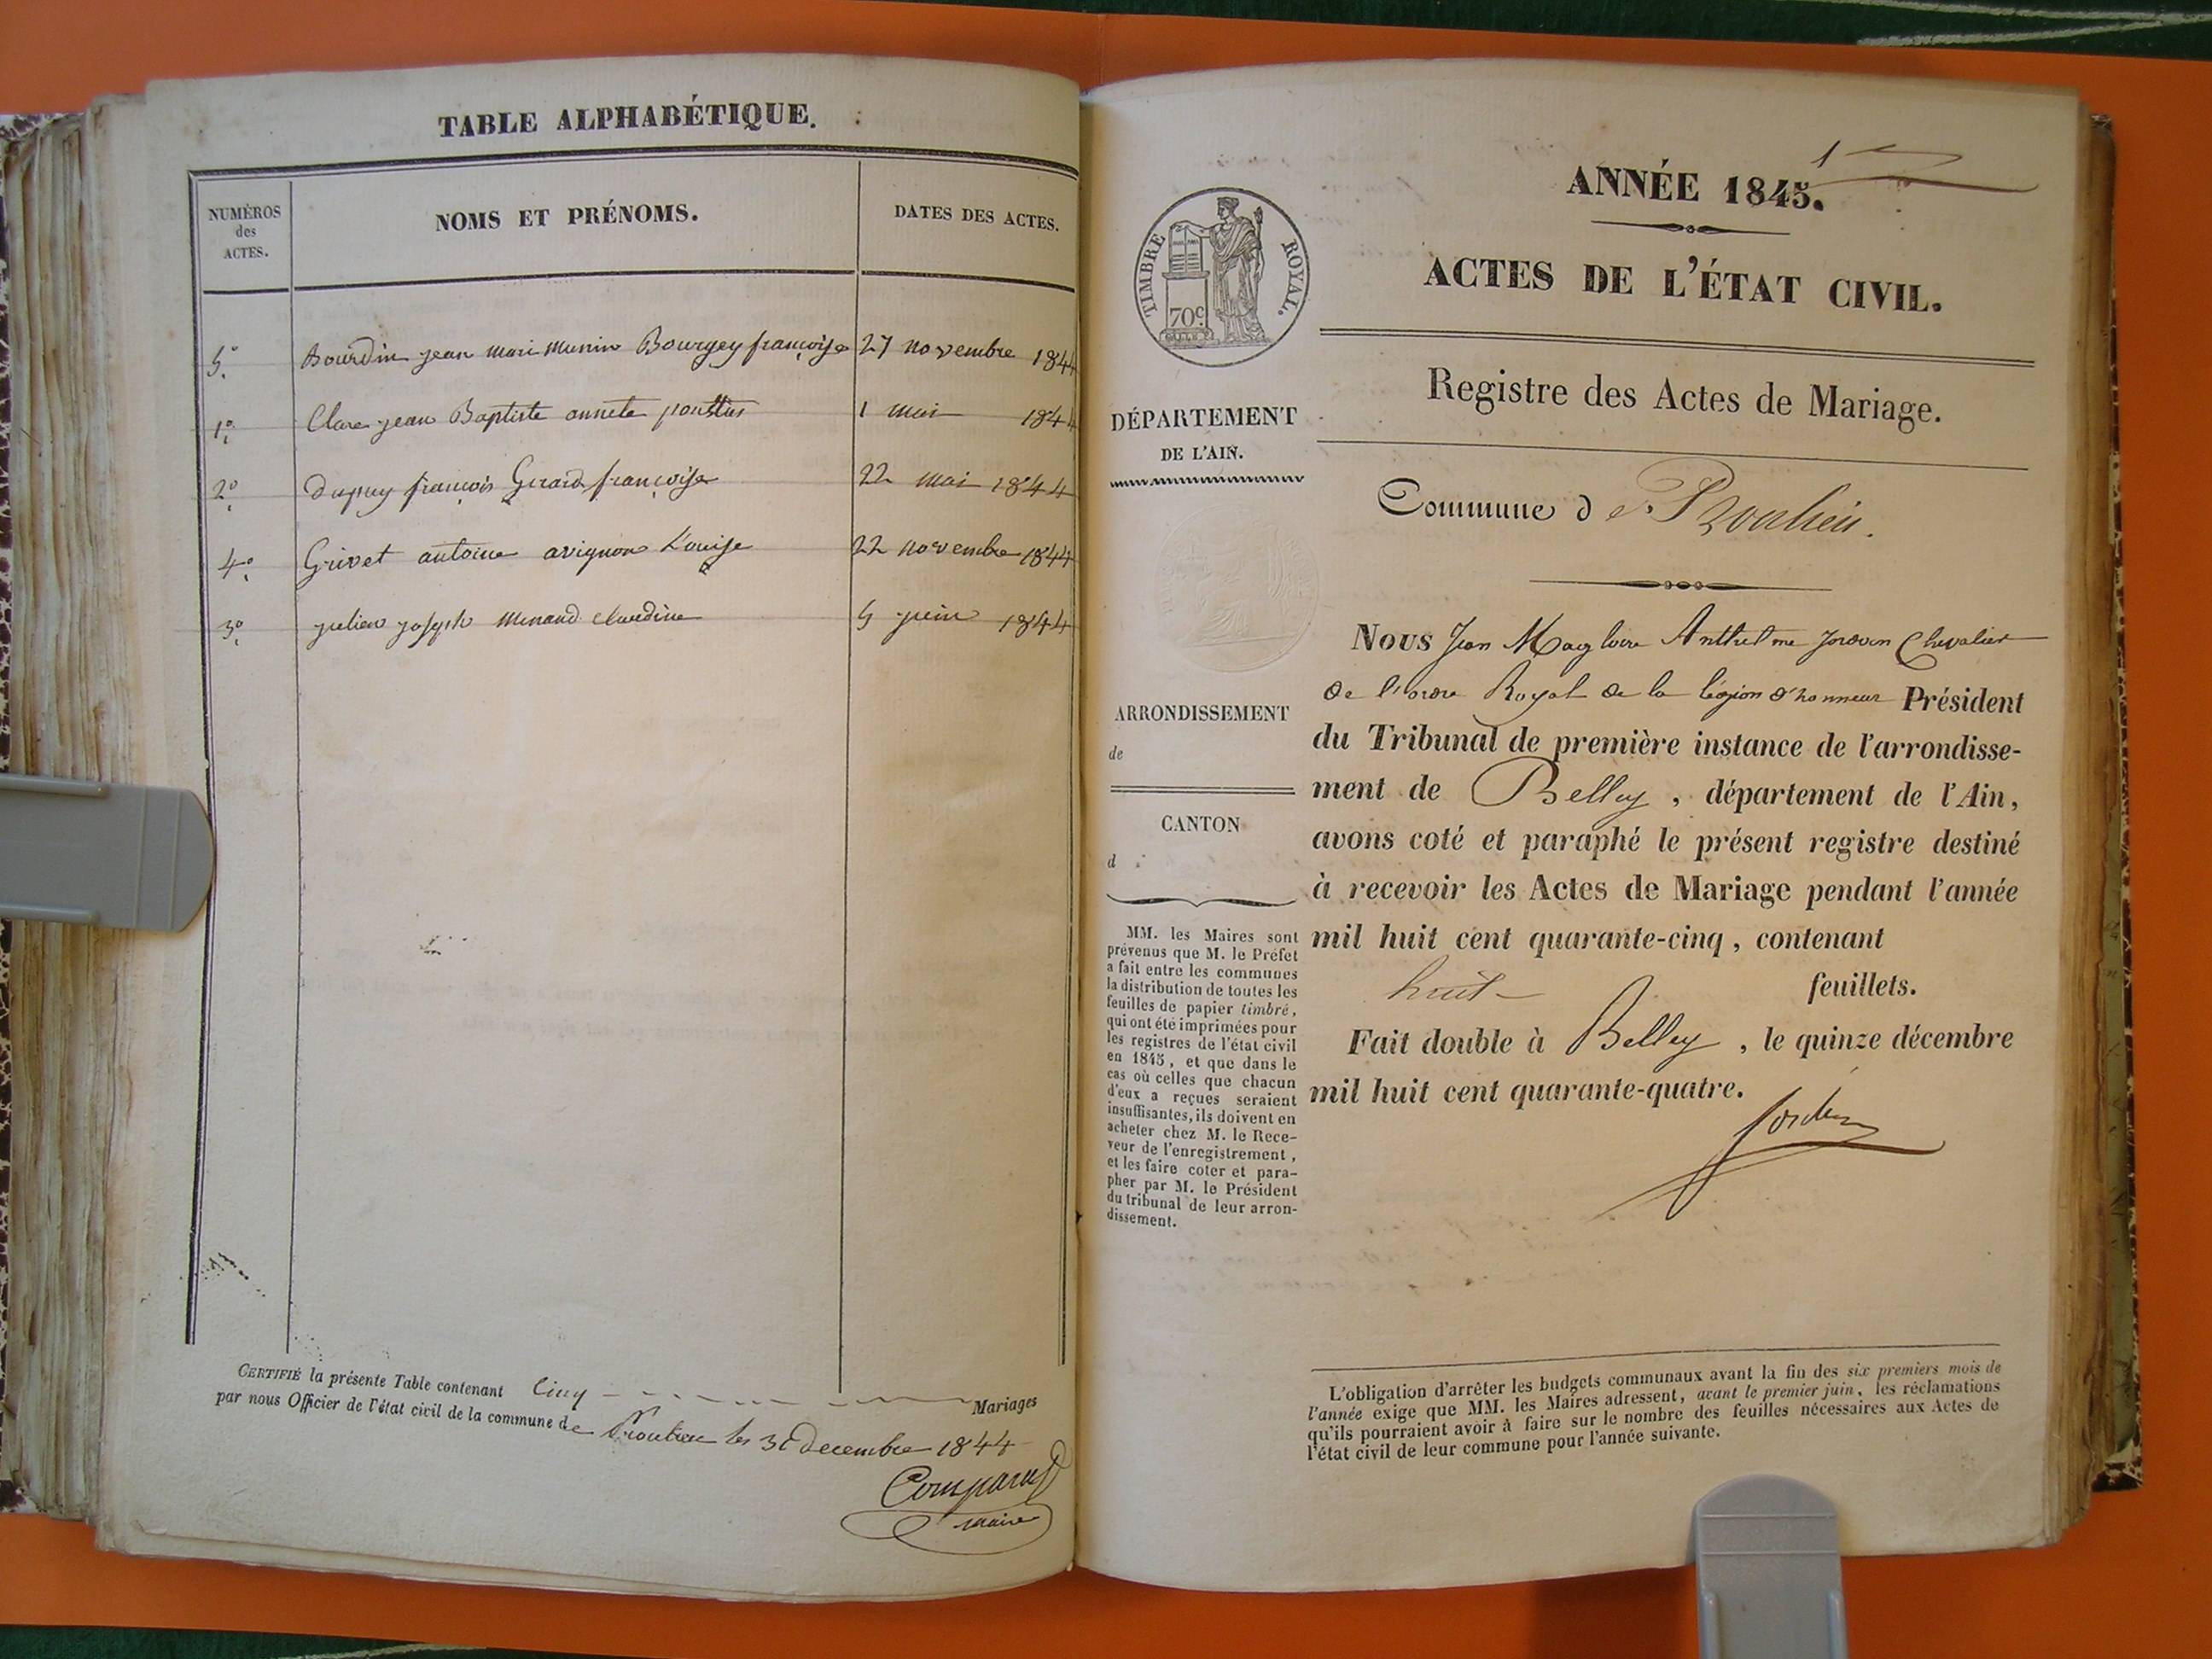 TABLE ALPHABÉTIQUE.
NUMÉROS des ACTES.
NOMS ET PRÉNOMS.
DATES DES ACTES.
5° Bourdin jean marie Bourgey françoise 27 novembre 1844
1° Clare jean Baptiste annete 1 mai 1844
2° dupuy françois Girard françoise 22 mai 1844
4° Grivet antoine avignon Louise 22 novembre 1844
3° julien joseph menand claudine 5 juin 1844
CERTIFIÉ la présente Table contenant Cinq Mariages
par nous Officier de l'état civil de la commune de Proulieu les 31 decembre 1844
maire
1
ANNÉE 1845.
ACTES DE L'ÉTAT CIVIL.
Registre des Actes de Mariage.
TIMBRE ROYAL.
70c
DÉPARTEMENT
DE L'AIN.
Commune de Proulieu.
ARRONDISSEMENT
de
CANTON
d
MM. les Maires sont
prévenus que M. le Préfet
a fait entre les communes
la distribution de toutes les
feuilles de papier timbré,
qui ont été imprimées pour
les registres de l'état civil
en 1845, et que dans le
cas où celles que chacun
d'eux a reçues seraient
insuffisantes, ils doivent en
acheter chez M. le Rece-
veur de l'enregistrement,
et les faire coter et para-
pher par M. le Président
du tribunal de leur arron-
dissement.
Nous Jean Magloire Anthelme Jordan Chevalier
de l'ordre Royal de la légion d'honneur Président
du Tribunal de première instance de l'arrondisse-
ment de Belley, département de l'Ain,
avons coté et paraphé le présent registre destiné
à recevoir les Actes de Mariage pendant l'année
mil huit cent quarante-cinq, contenant
huit feuillets.
Fait double à Belley, le quinze décembre
mil huit cent quarante-quatre.
Jordan
L'obligation d'arrêter les budgets communaux avant la fin des six premiers mois de
l'année exige que MM. les Maires adressent, avant le premier juin, les réclamations
qu'ils pourraient avoir à faire sur le nombre des feuilles nécessaires aux Actes de
l'état civil de leur commune pour l'année suivante.